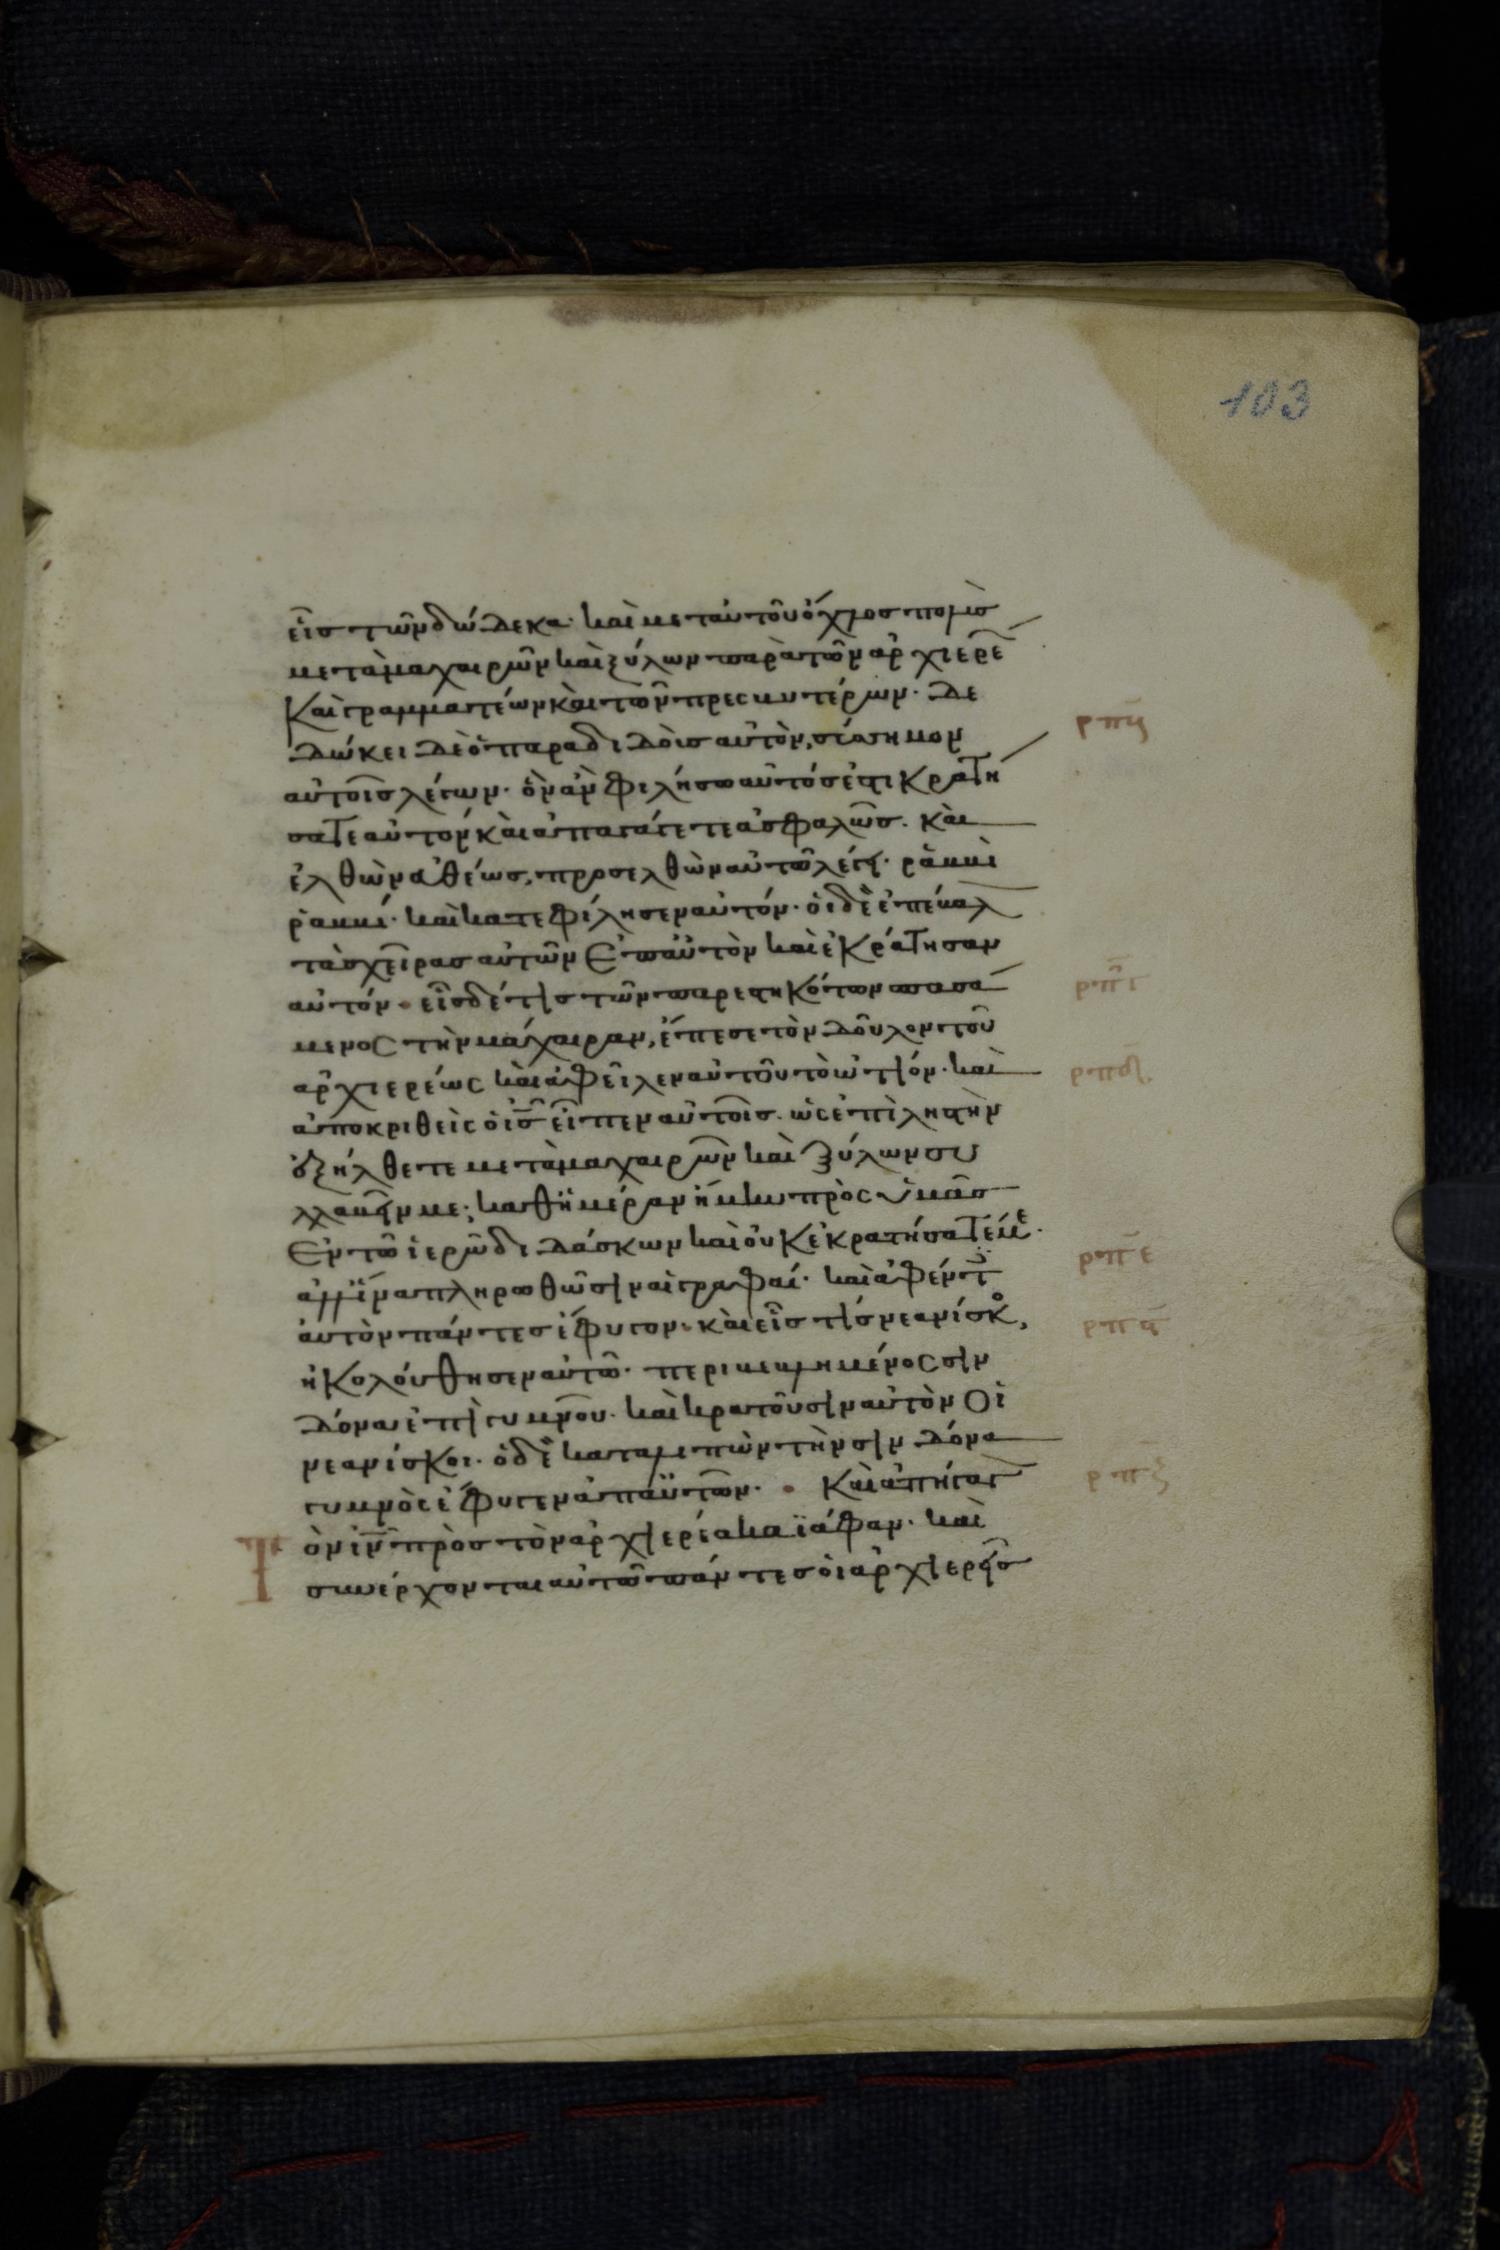 103
εἷς τῶν δώδεκα· καὶ μετ αὐτοῦ ὄχλος πολὺς
μετὰ μαχαιρῶν καὶ ξύλων παρὰ τῶν ἀρχιερέ
καὶ γραμματέων καὶ τῶν πρεσβυτέρων· δε
δώκει δὲ ὁ παραδιδοὺς αὐτὸν, σύσσημον
αὐτοῖς λέγων· ὃν ἂν φιλήσω αὐτός ἐστι κρατή
σατε αὐτόν καὶ ἀπαγάγετε ἀσφαλῶς. καὶ
ἐλθὼν εὐθέως, προσελθὼν αὐτῶ λέγει· ῥαββὶ
ῥαββί· καὶ κατεφίλησεν αὐτόν· οἱ δὲ ἐπέβαλ
τὰς χεῖρας αὐτῶν ἐπ αὐτὸν καὶ ἐκράτησαν
αὐτόν· εἷς δέ τις τῶν παρεστηκότων σπασά
μενος τὴν μάχαιραν, ἔπεσε τὸν δοῦλον τοῦ
ἀρχιερέως καὶ ἀφεῖλεν αὐτοῦ τὸ ὠτίον· καὶ
ἀποκριθεὶς ὁ ις εἶπεν αὐτοῖς· ὡς ἐπὶ ληστὴν
ἐξήλθετε μετὰ μαχαιρῶν καὶ ξύλων συ
λλαβεῖν με; καθ ἡμέραν ἤμην πρὸς ὑμᾶς
ἐν τῶ ἱερῶ διδάσκων καὶ οὐκ ἐκρατήσατέ με·
ἀλλ ἵνα πληρωθῶσιν αἱ γραφαί· καὶ ἀφέντ
αὐτὸν πάντες ἔφυγον· καὶ εἷς τις νεανίσκο,
ἠκολούθησεν αὐτῶ· περιβεβλημένος σιν
δόνα ἐπὶ γυμνοῦ· καὶ κρατοῦσιν αὐτὸν οἱ
νεανίσκοι· ὁ δὲ καταλιπὼν τὴν σινδόνα
γυμνὸς ἔφυγεν ἀπ αὐτῶν· Καὶ ἀπήγαγ
ὸν ιν πρὸς τὸν ἀρχιερέα καϊάφαν· καὶ
συνέρχονται αὐτῶ πάντες οἱ ἀρχιερεῖς
ρπε